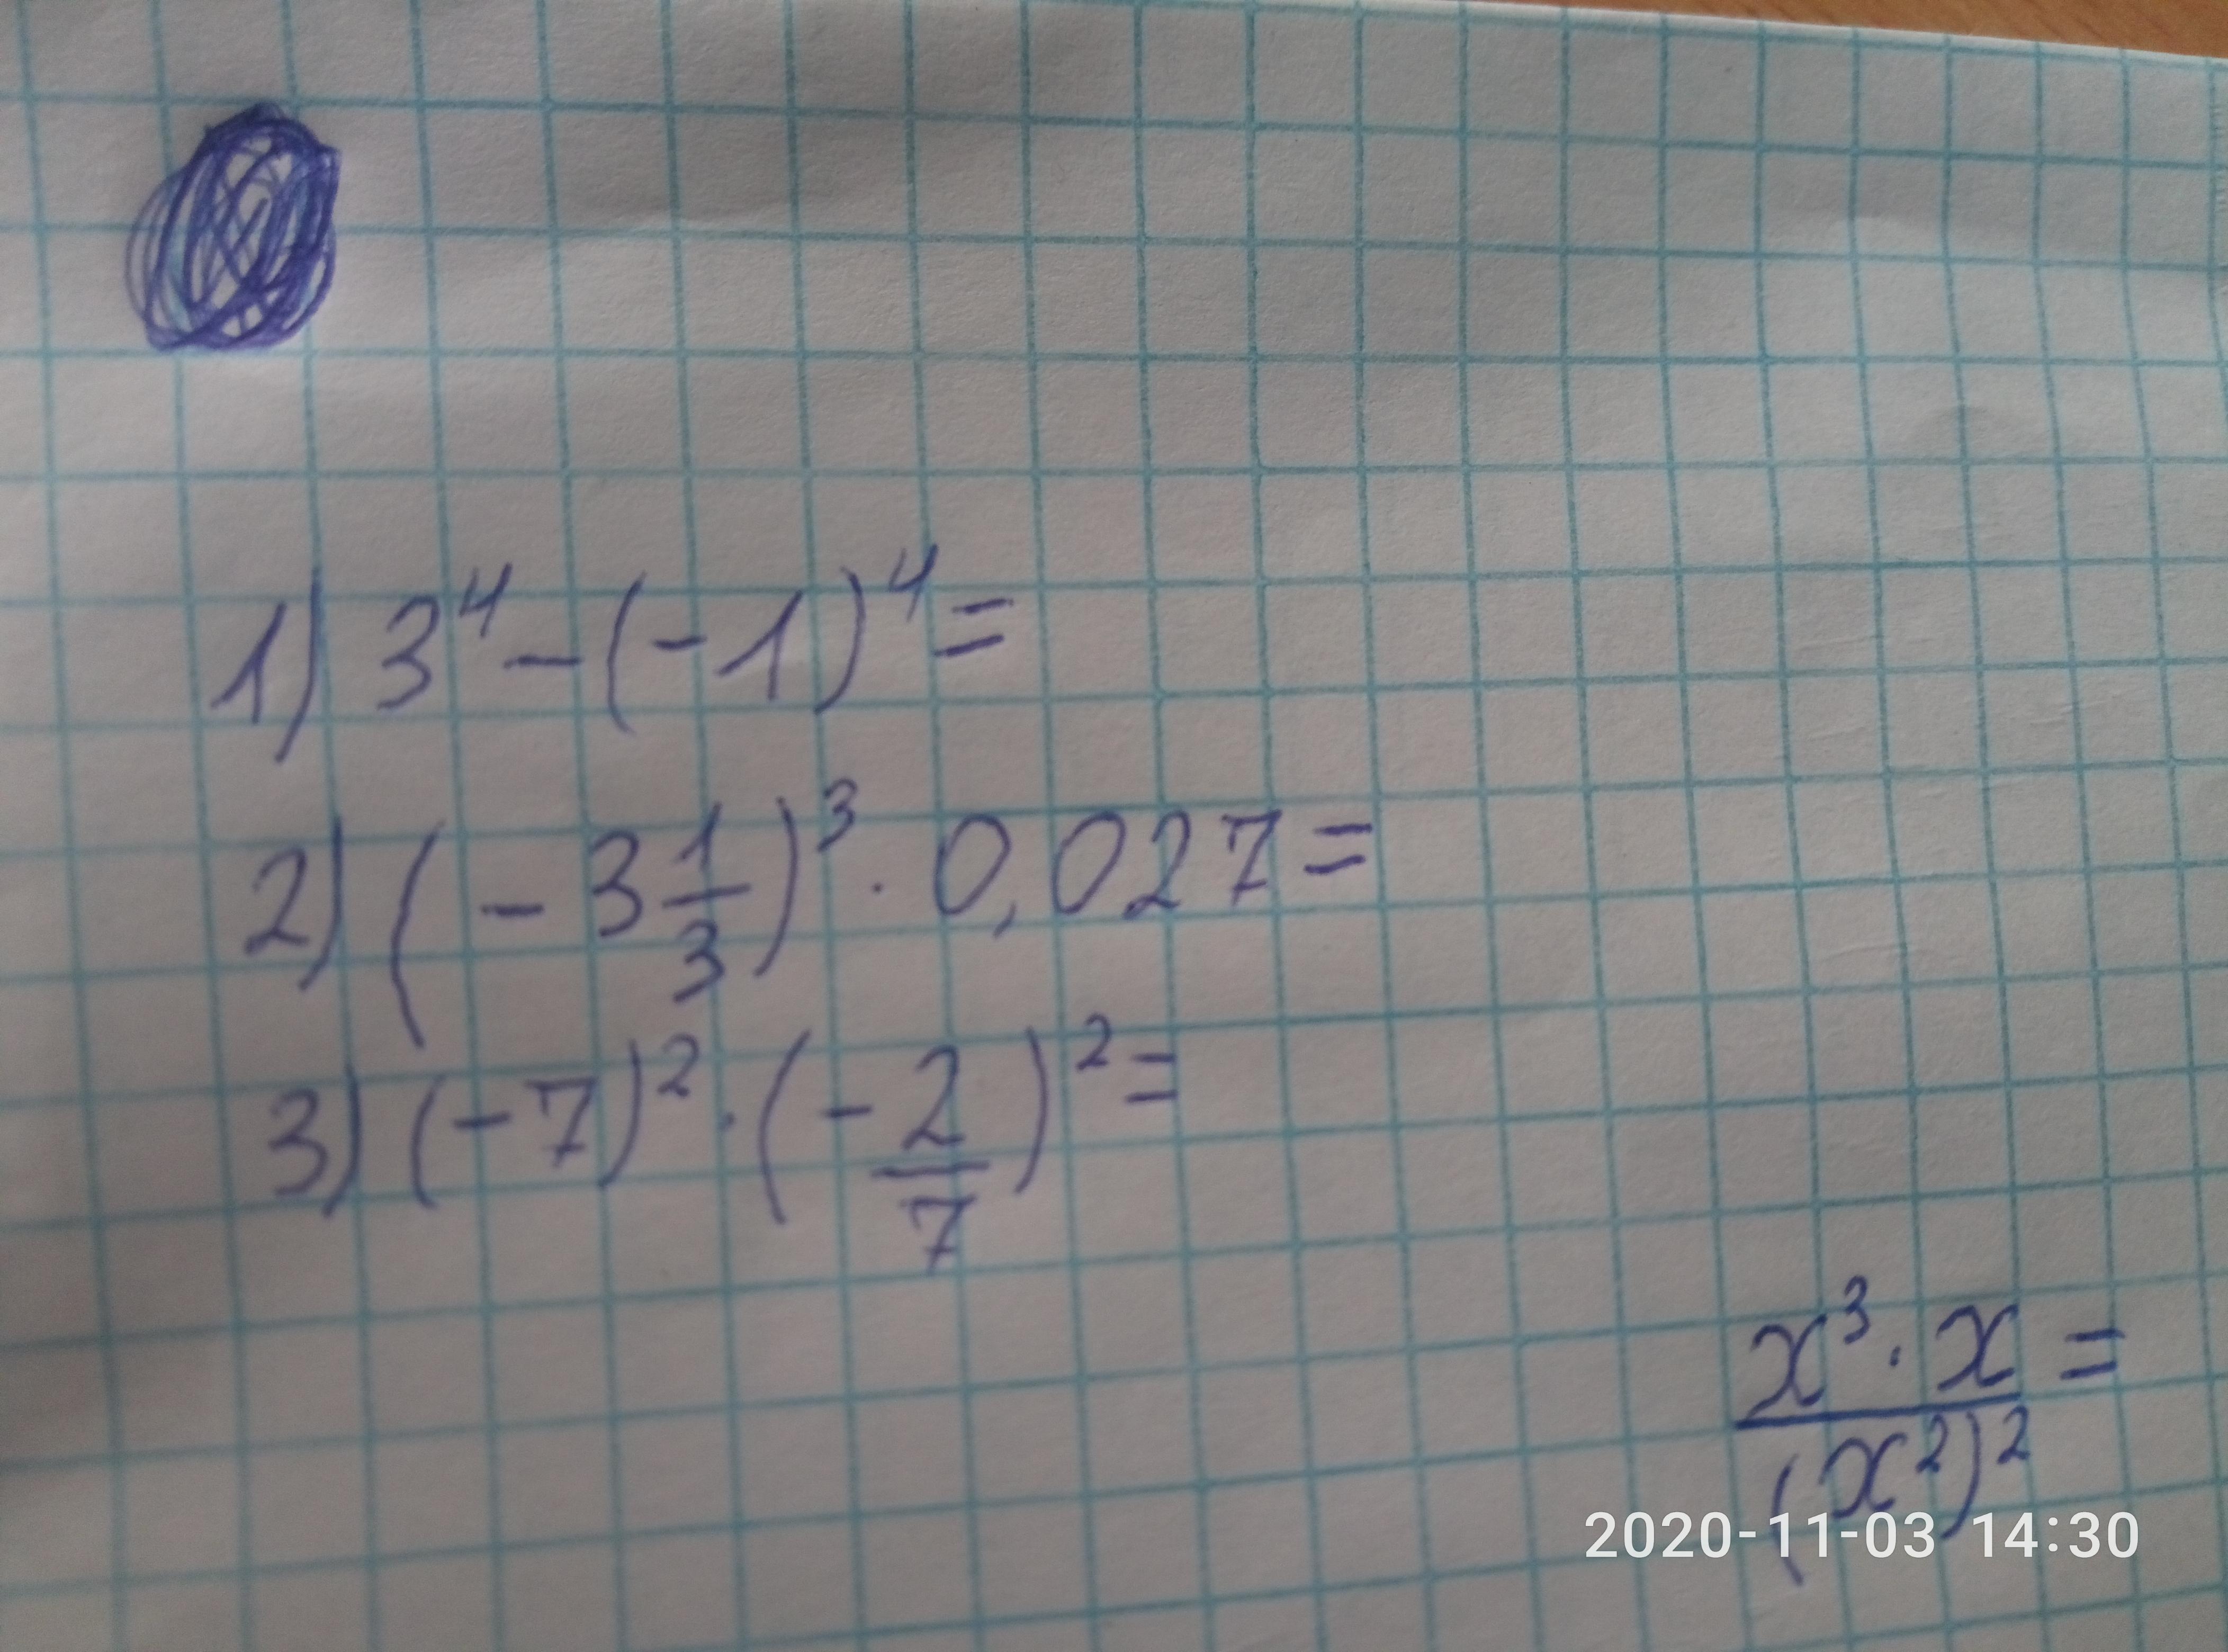 1) 3⁴ - (-1)⁴ =
2) (-3 1/3)³ · 0,027 =
3) (-7)² · (-2/7)² =
x³ · x / (x²)² =
2020-11-03 14:30